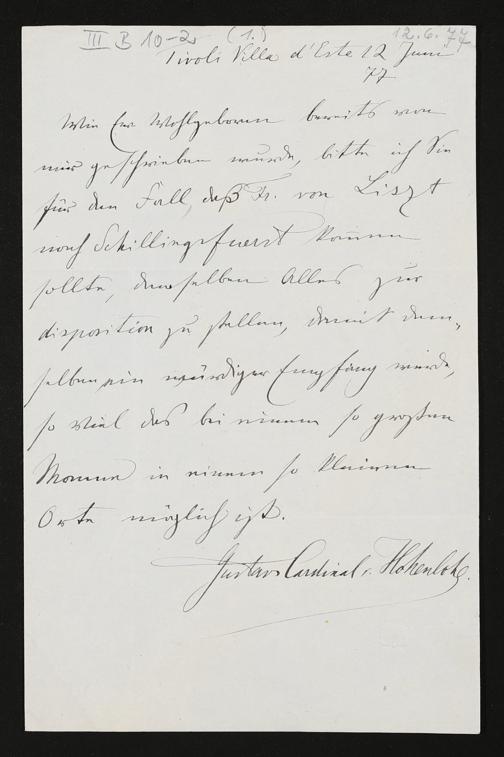 III B 10-2, (1.) 12.6.77
Tivoli Villa d'Este 12 Juni
77
Wie Ew Wohlgeboren bereits von
mir geschrieben wurde, bitte ich Sie
für den Fall, daß Fr. von Liszt
nach Schillingsfuerst kommen
sollte, demselben Alles zur
disposition zu stellen, damit dem-
selben ein würdiger Empfang werde,
so viel das bei einem so großen
Manne in einem so kleinen
Orte möglich ist.
Gustav Cardinal v. Hohenlohe.